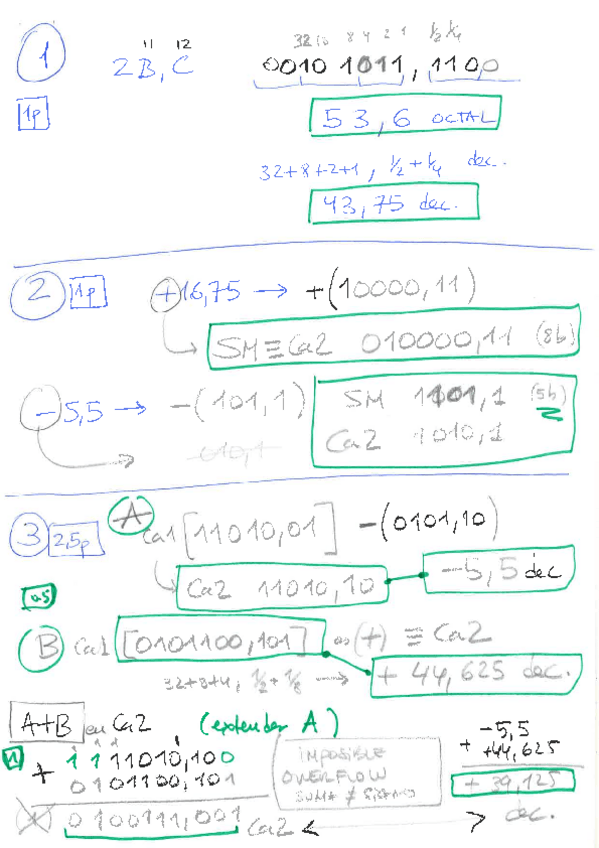 1
1p
11 12
2B,C
32 16 8 4 2 1 1/2 1/4
00101011,1100
53,6 OCTAL
32+8+2+1, 1/2+1/4 dec.
43,75 dec.
2 1p
+16,75 → +(10000,11)
SM≡Ca2 010000,11 (8b)
-5,5 → -(101,1)
SM 1101,1 (5b)
010,1
Ca2 1010,1
3 2,5p
A Ca1[11010,01] -(0101,10)
Ca2 11010,10
-5,5 dec
0.5
B Ca1 [0101100,101] (+) ≡ Ca2
32+8+4, 1/2+1/8 →
+44,625 dec.
A+B en Ca2 (extender A)
1
1 1 1 1
1111010,100
+ 0101100,101
(1) 0100111,001 Ca2
IMPOSIBLE
OVERFLOW
SUMA ≠ SIGNO
-5,5
+ +44,625
+39,125
dec.